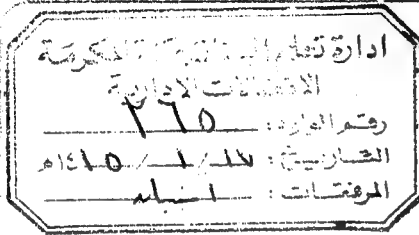 ادارة تعليم المكرمة
الاتصالات الادارية
رقم الوارد: ٢٦٥
التاريخ: ١٧ / ١ / ١٤١٥هـ
المرفقات: